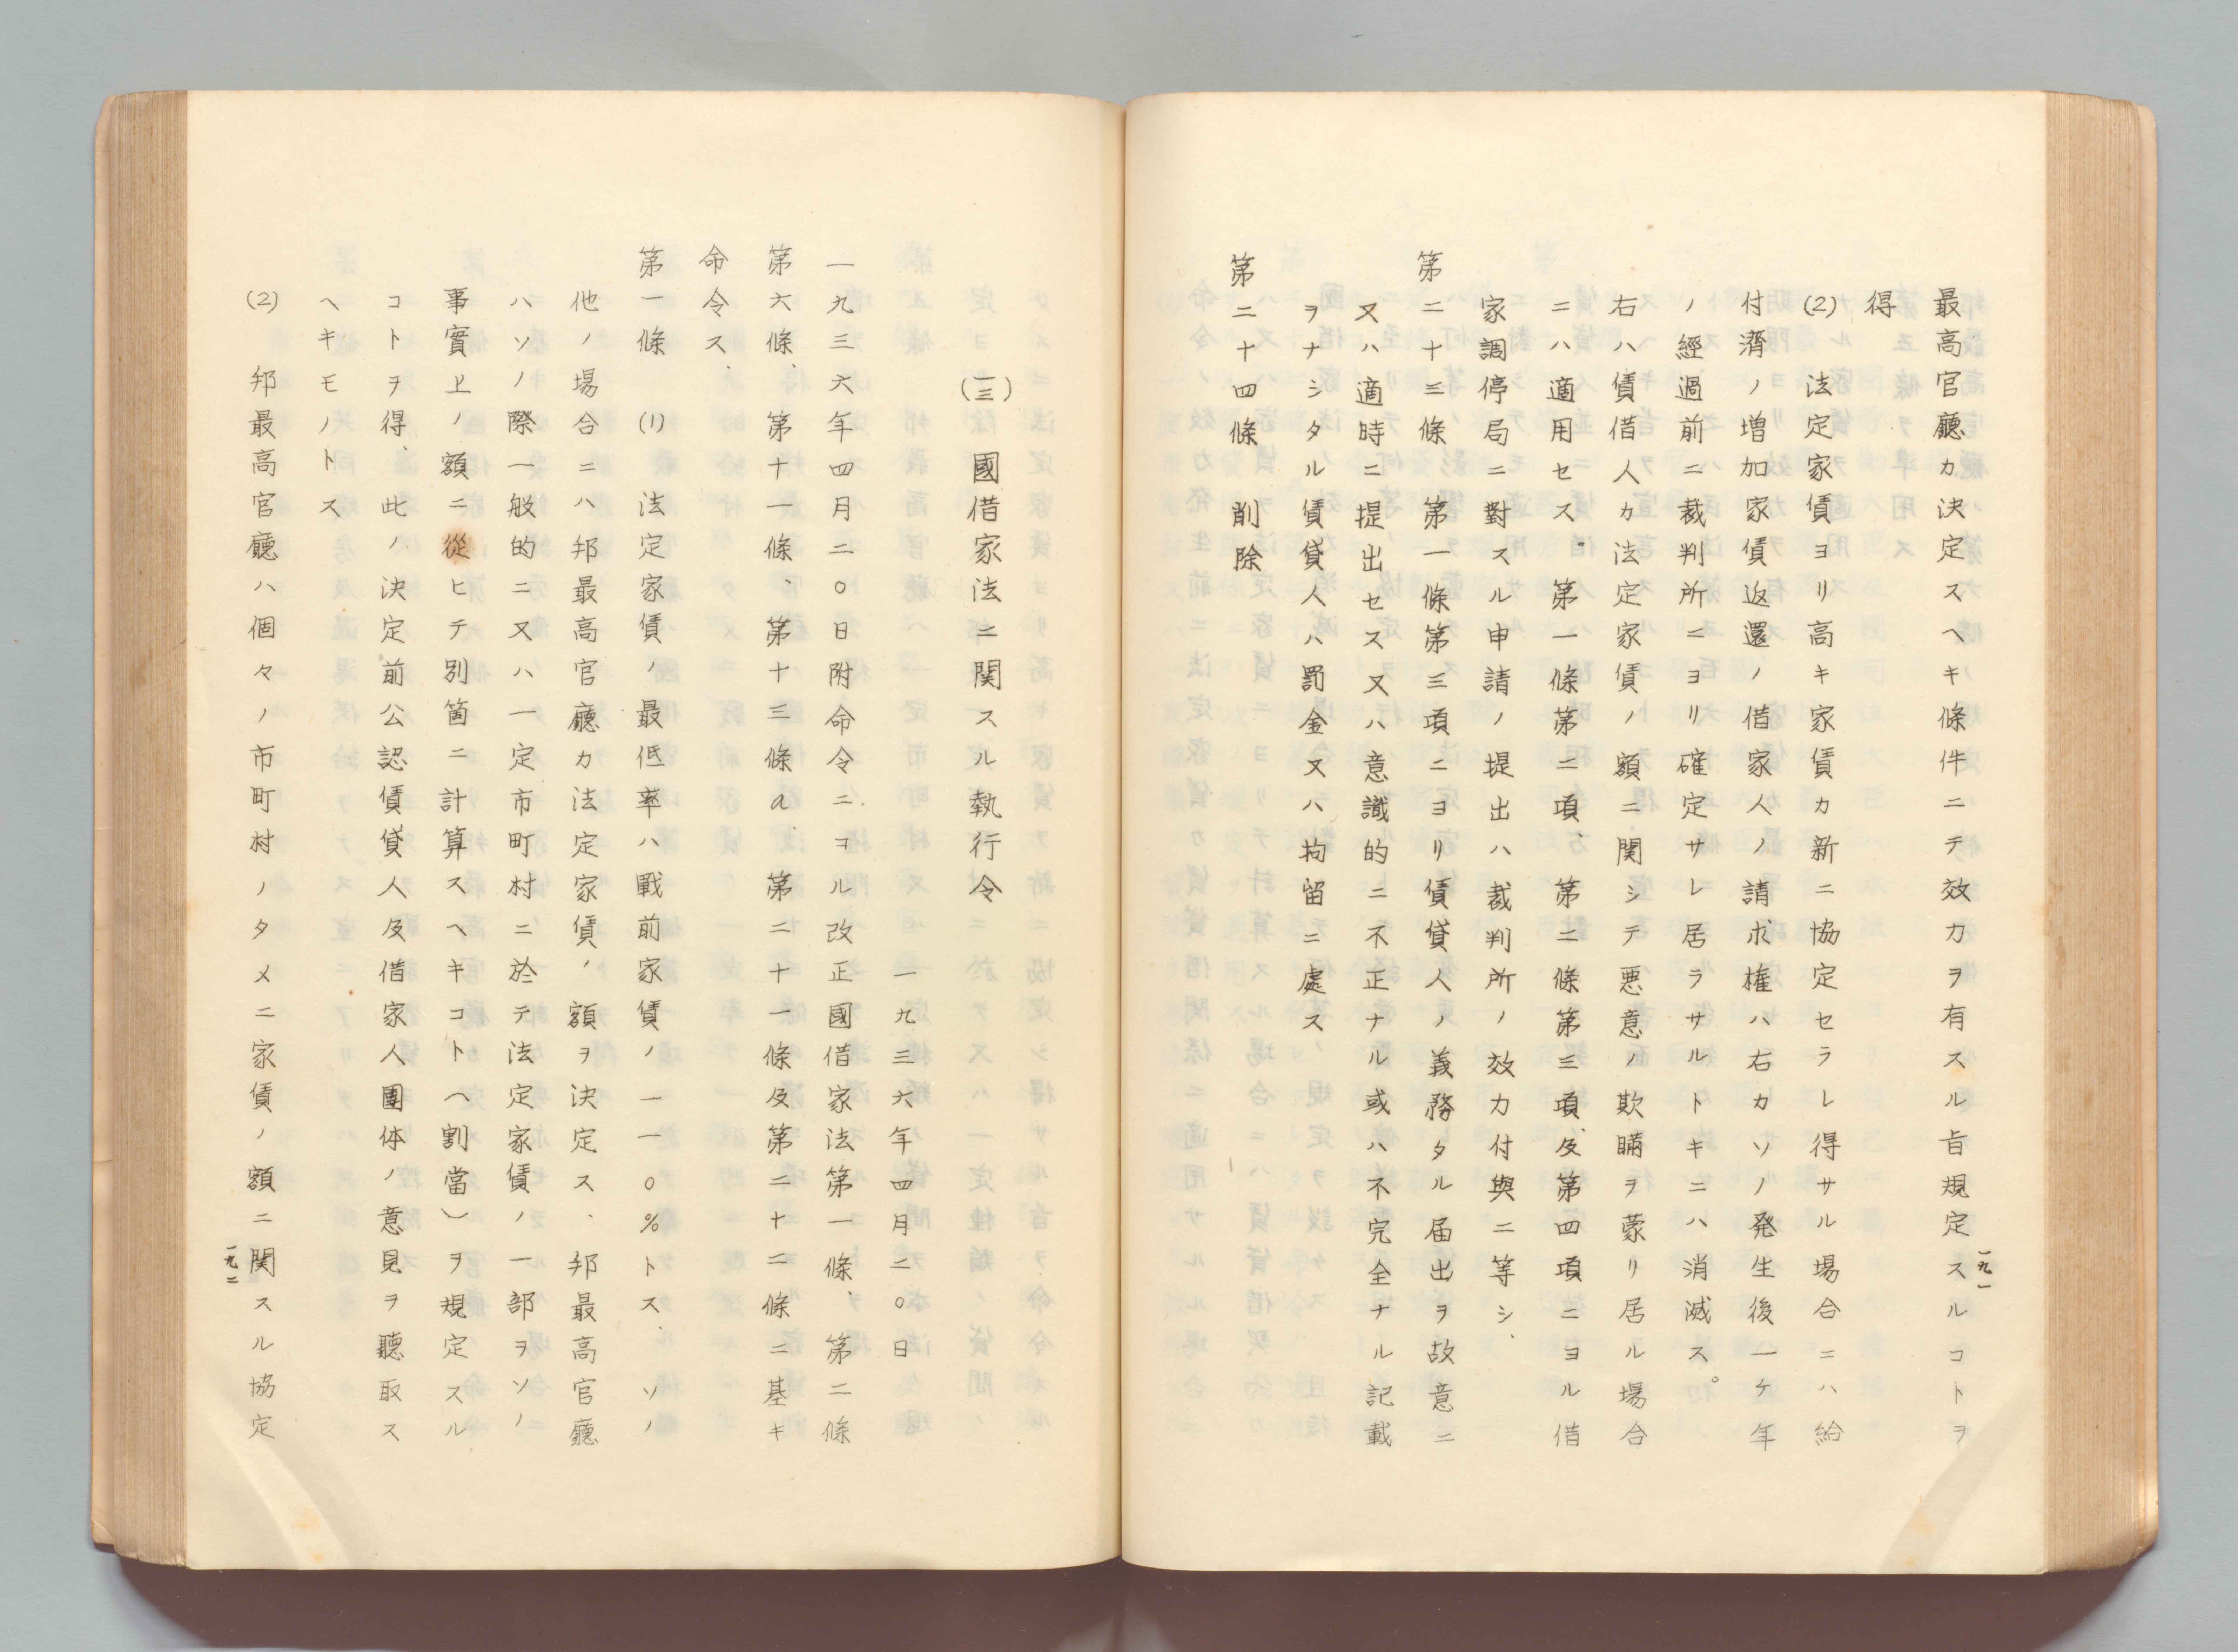 最高官廳カ決定スヘキ條件ニテ效力ヲ有スル旨規定スルコトヲ
得
(2) 法定家賃ヨリ高キ家賃カ新ニ協定セラレ得サル場合ニハ給
付濟ノ増加家賃返還ノ借家人ノ請求權ハ右カソノ発生後一ケ年
ノ經過前ニ裁判所ニヨリ確定サレ居ラサルトキニハ消滅ス。
右ハ賃借人カ法定家賃ノ額ニ関シテ悪意ノ欺瞞ヲ蒙リ居ル場合
ニハ適用セス。第一條第二項、第二條第三項、及第四項ニヨル借
家調停局ニ對スル申請ノ提出ハ裁判所ノ效力付與ニ等シ、
第二十三條 第一條第三項ニヨリ賃貸人ノ義務タル届出ヲ故意ニ
又ハ適時ニ提出セス又ハ意識的ニ不正ナル或ハ不完全ナル記載
ヲナシタル賃貸人ハ罰金又ハ拘留ニ處ス
第二十四條 削除
一九一
(三) 國借家法ニ関スル執行令
一九三六年四月二〇日
一九三六年四月二〇日附命令ニヨル改正國借家法第一條、第二條
第六條、第十一條、第十三條a、第二十一條及第二十二條ニ基キ
命令ス、
第一條 (1) 法定家賃ノ最低率ハ戰前家賃ノ一一〇%トス、ソノ
他ノ場合ニハ邦最高官廳カ法定家賃ノ額ヲ決定ス、邦最高官廳
ハソノ際一般的ニ又ハ一定市町村ニ於テ法定家賃ノ一部ヲソノ
事實上ノ額ニ從ヒテ別箇ニ計算スヘキコト(割當)ヲ規定スル
コトヲ得、此ノ決定前公認賃貸人及借家人團体ノ意見ヲ聽取ス
ヘキモノトス
(2) 邦最高官廳ハ個々ノ市町村ノタメニ家賃ノ額ニ関スル協定
一九二